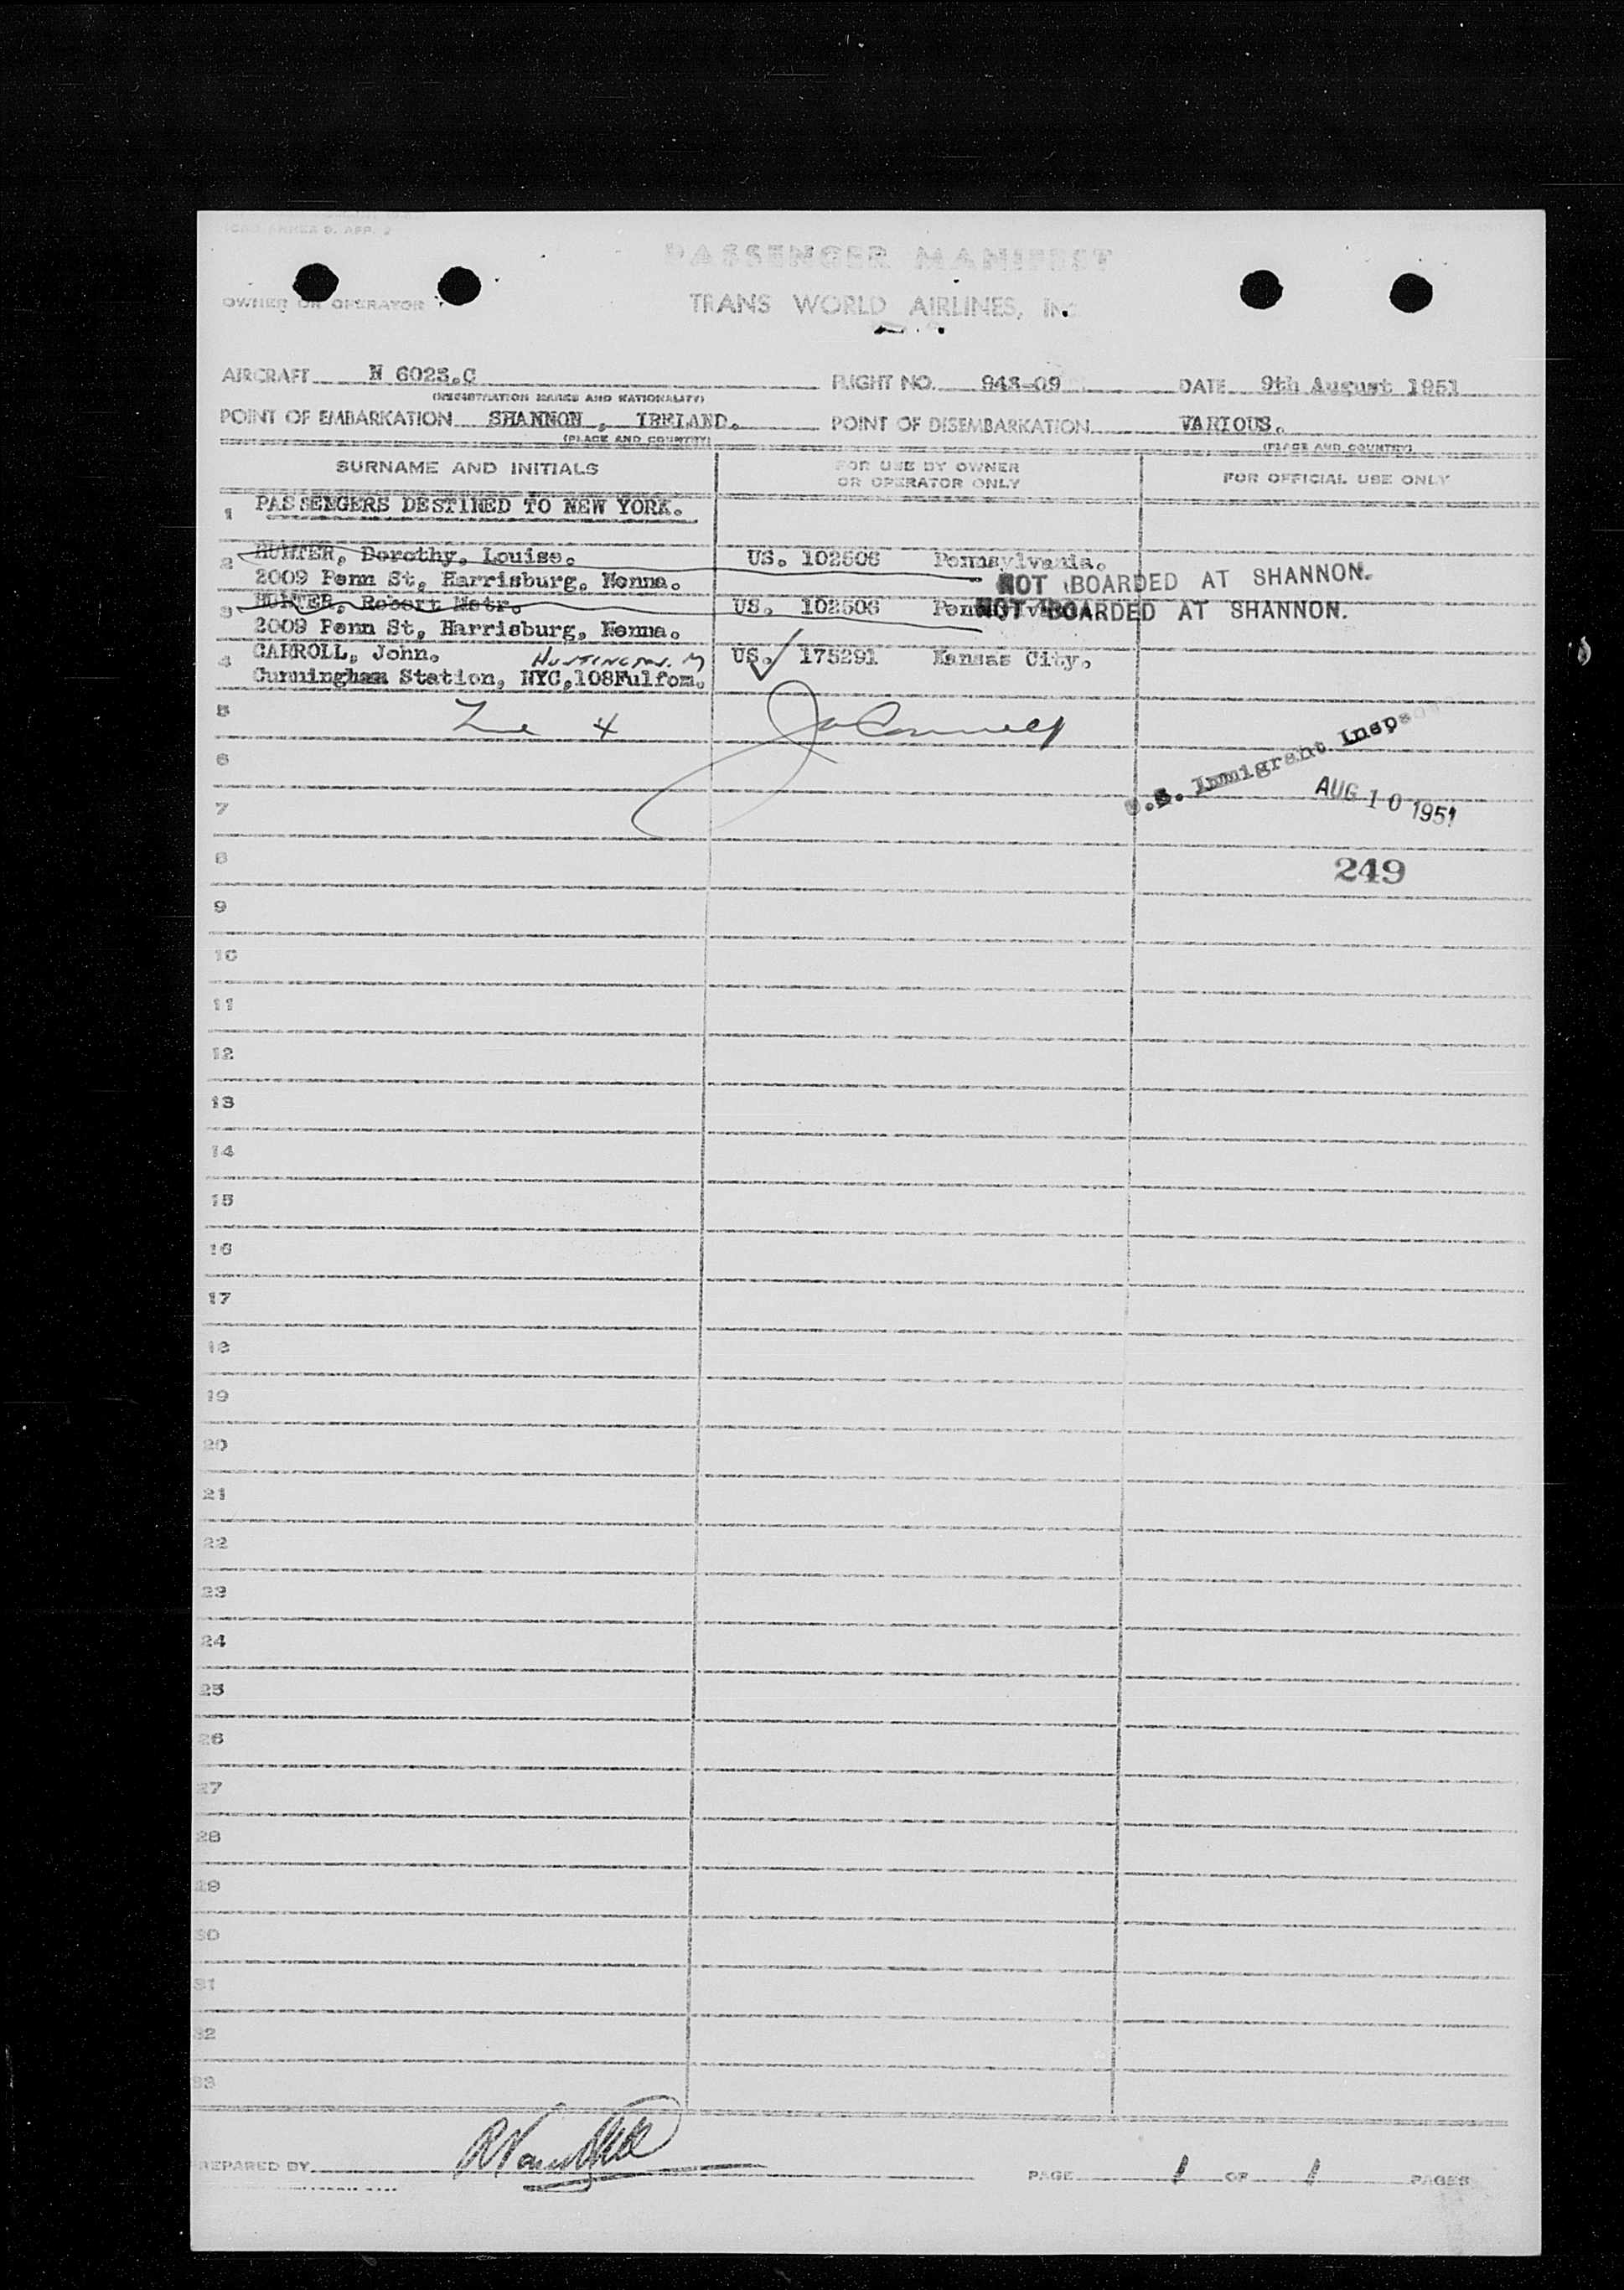 ICAO ANNEX 9, APP. 2
PASSENGER MANIFEST
OWNER OR OPERATOR
TRANS WORLD AIRLINES, INC
AIRCRAFT N 6023.C FLIGHT NO. 943-09 DATE 9th August 1951
(REGISTRATION MARKS AND NATIONALITY)
POINT OF EMBARKATION SHANNON , IRELAND. POINT OF DISEMBARKATION VARIOUS.
(PLACE AND COUNTRY) (PLACE AND COUNTRY)
SURNAME AND INITIALS FOR USE BY OWNER OR OPERATOR ONLY FOR OFFICIAL USE ONLY
1 PASSENGERS DESTINED TO NEW YORK.
2 HUNTER, Dorothy, Louise. US. 102506 Pennsylvania.
2009 Penn St, Harrisburg, Nenna. NOT BOARDED AT SHANNON.
3 HUNTER, Robert Mstr. US. 102506 Pennsylvania. NOT BOARDED AT SHANNON.
2009 Penn St, Harrisburg, Nenna.
4 CARROLL, John. US. 175291 Kansas City.
HUNTINGTON.
Cunningham Station, NYC,108Fulfom.
5
U.S. Immigrant Inspector
6
AUG 10 1951
7
8 249
9
10
11
12
13
14
15
16
17
18
19
20
21
22
23
24
25
26
27
28
29
30
31
32
33
PREPARED BY PAGE 1 OF 1 PAGES